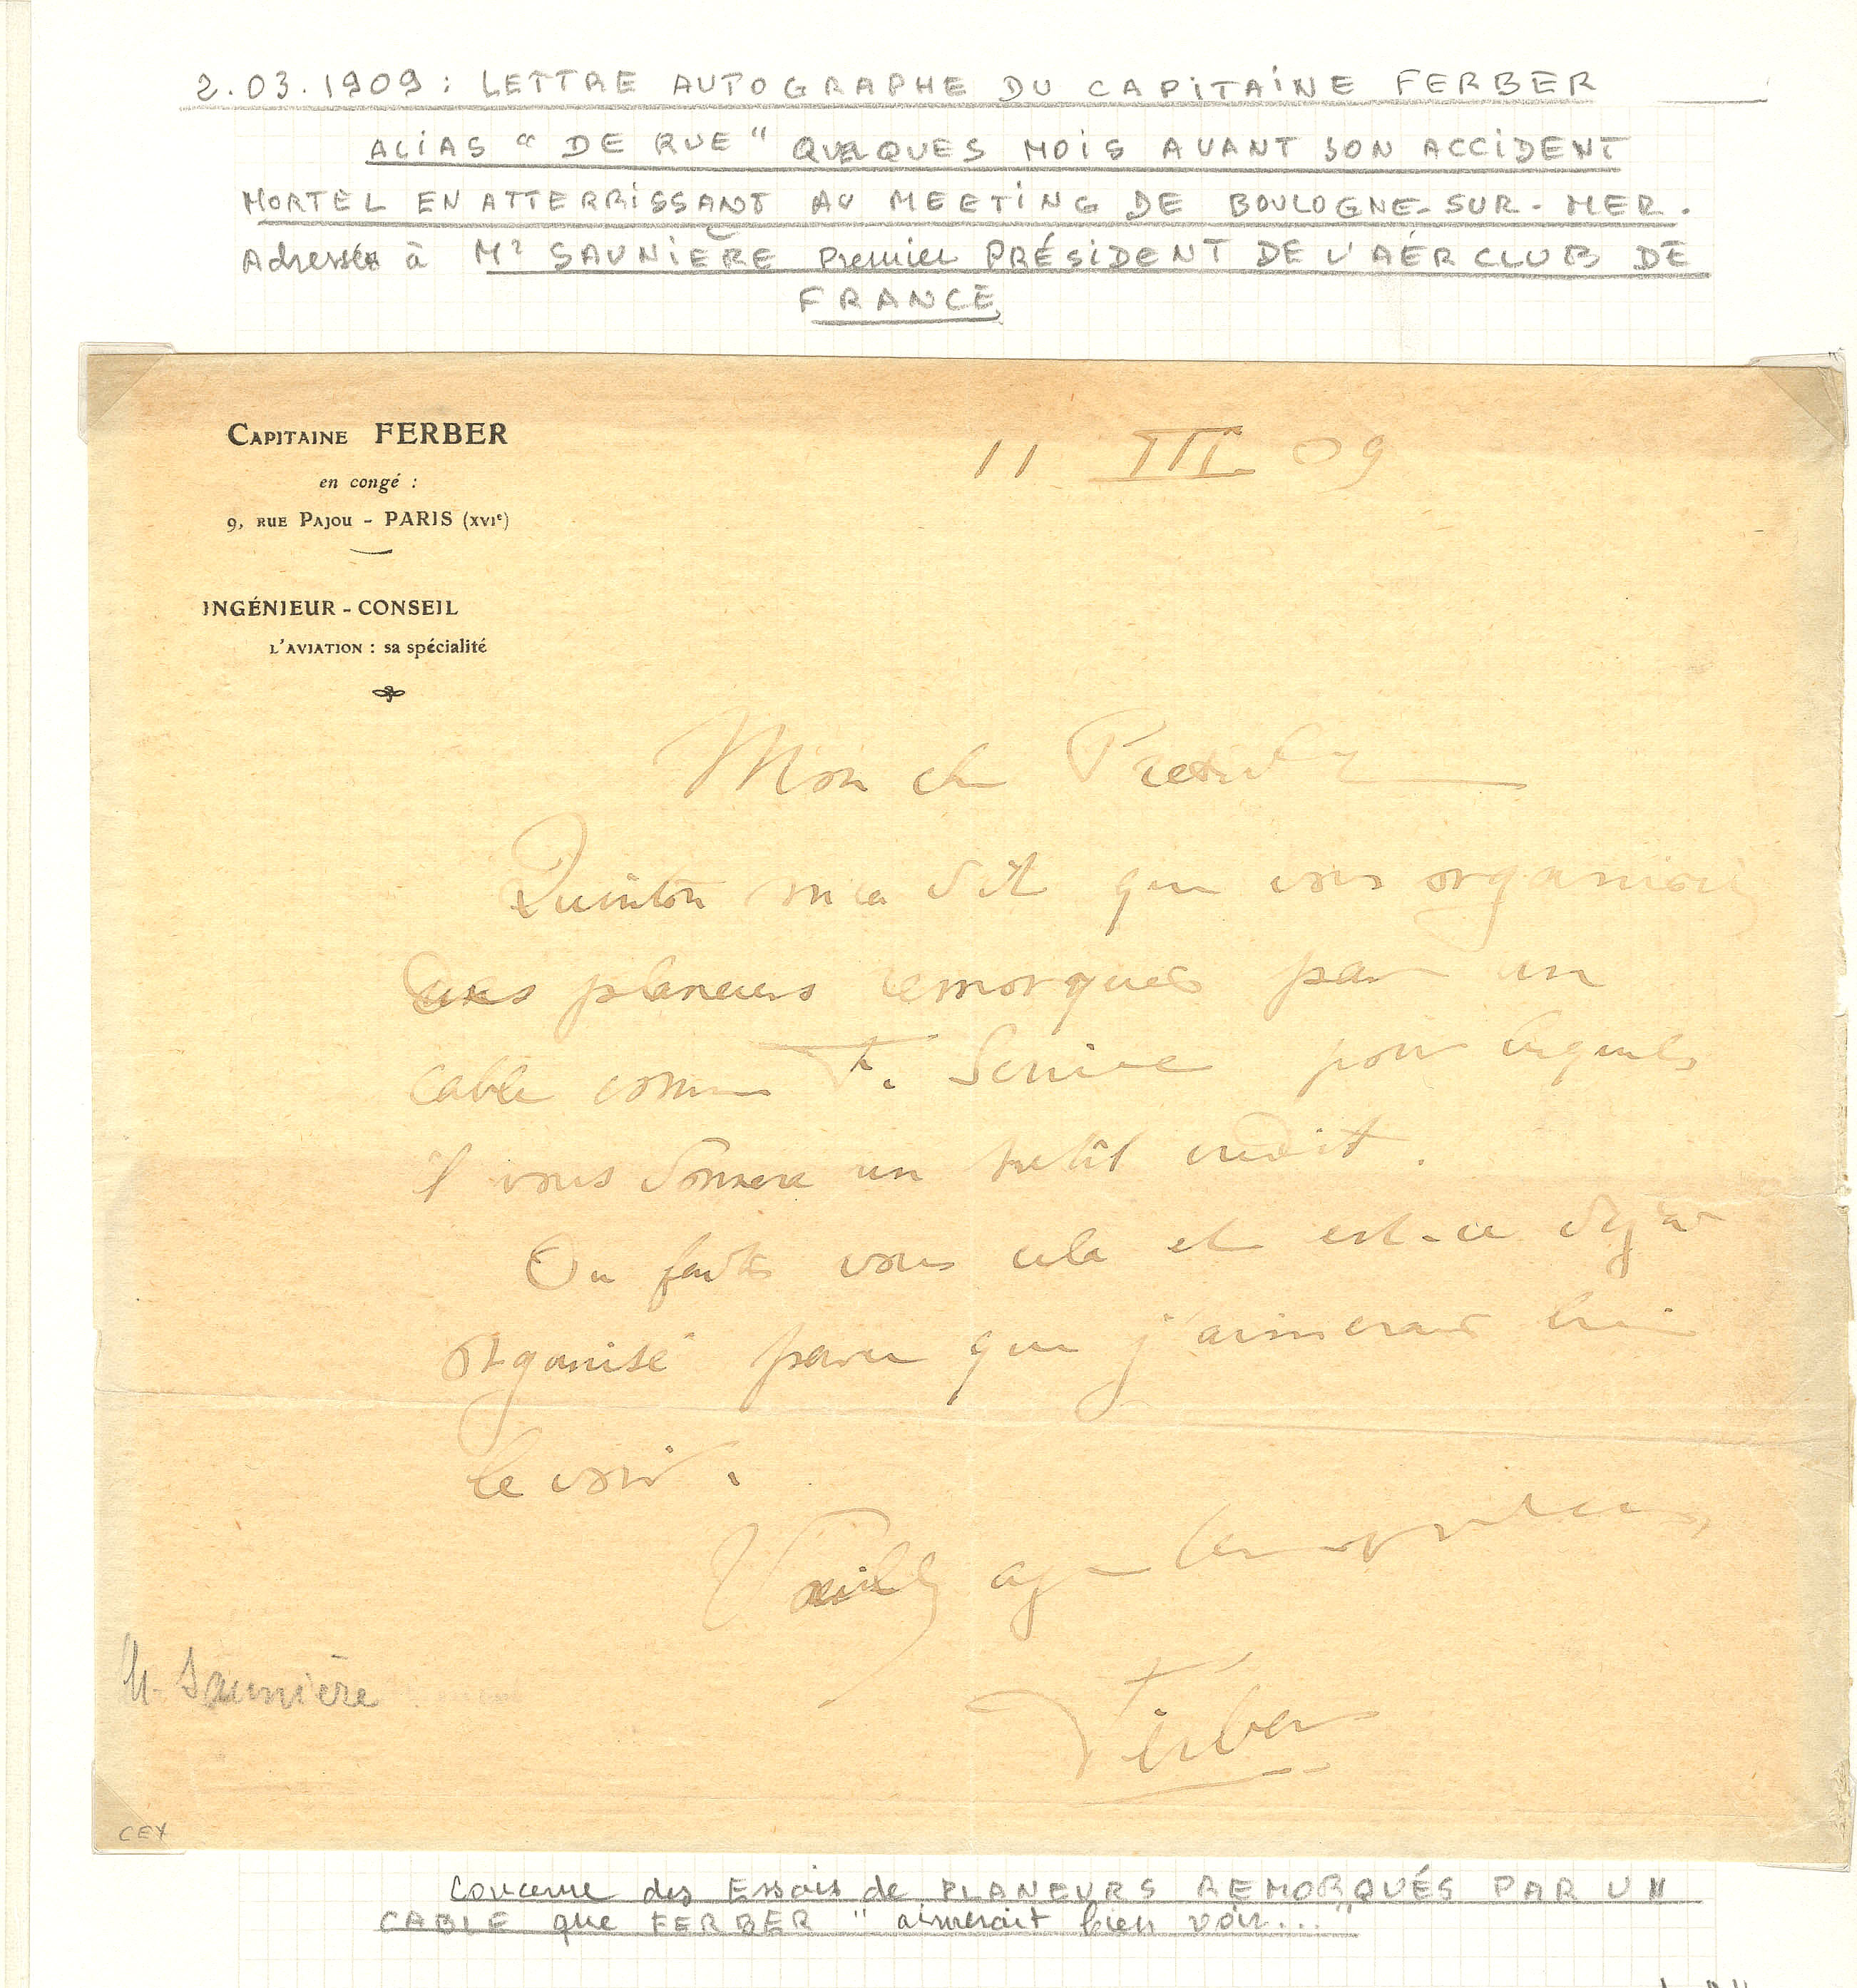 2.03.1909 : LETTRE AUTOGRAPHE DU CAPITAINE FERBER
ALIAS " DE RUE " QUELQUES MOIS AVANT SON ACCIDENT
MORTEL EN ATTERRISSANT AU MEETING DE BOULOGNE-SUR-MER.
Adressée à Mr SAUNIÈRE Premier PRÉSIDENT DE L'AÉRCLUB DE
FRANCE
CAPITAINE FERBER
11 III 09
en congé :
9, RUE PAJOU - PARIS (XVIe)
INGÉNIEUR - CONSEIL
L'AVIATION : sa spécialité
Mon cher
Quinton m'a dit que vous
planeurs remorqués par un
cable comme pour lesquels
il vous donnera un petit crédit.
Ou faites vous cela et est-ce déjà
organisé parce que j'aimerais bien
le voir.
Veuillez
M. Saunière
Ferber
CEX
Concerne des Essais de PLANEURS REMORQUÉS PAR UN
CABLE que FERBER " aimerait bien voir... "